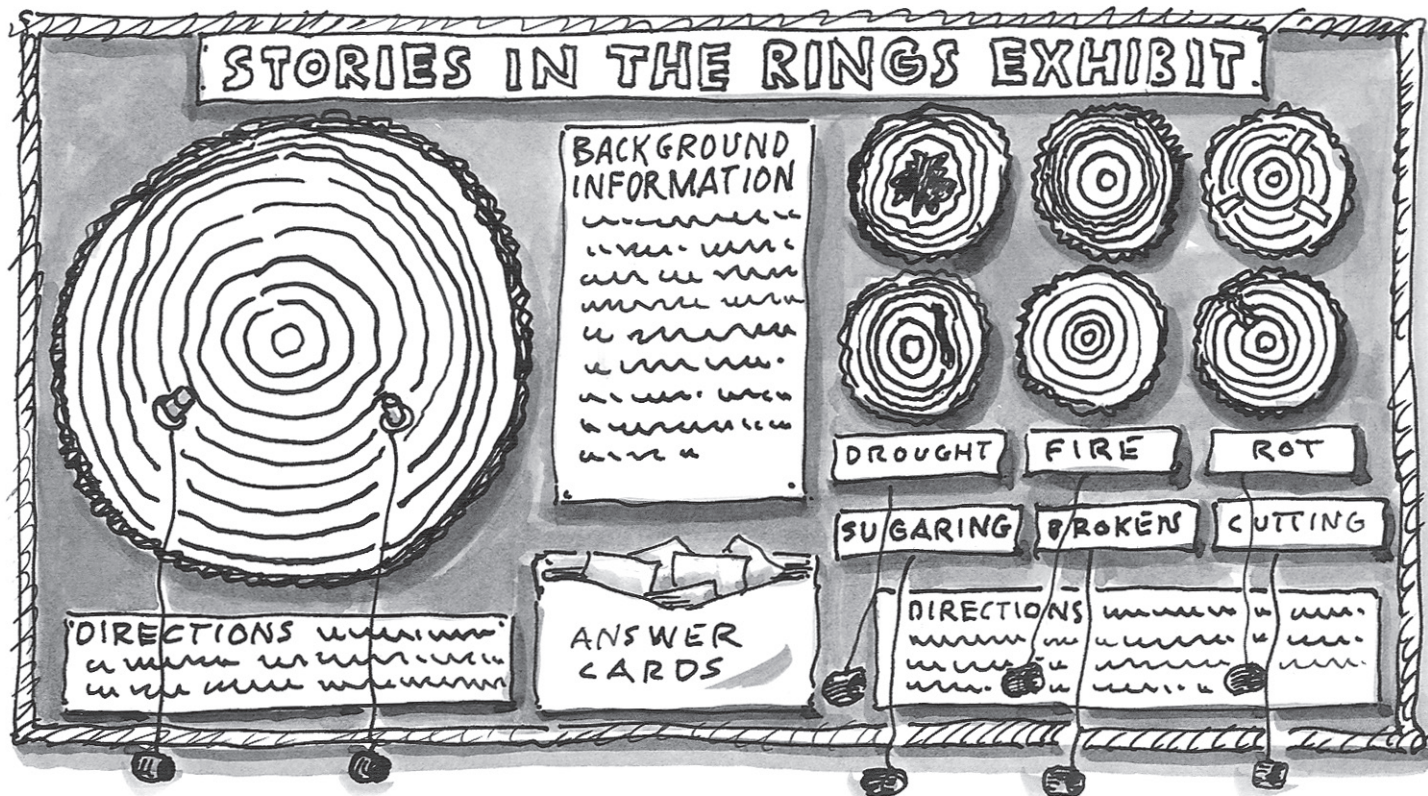 STORIES IN THE RINGS EXHIBIT
BACKGROUND
INFORMATION
DROUGHT
FIRE
ROT
SUGARING
BROKEN
CUTTING
DIRECTIONS
ANSWER
CARDS
DIRECTIONS